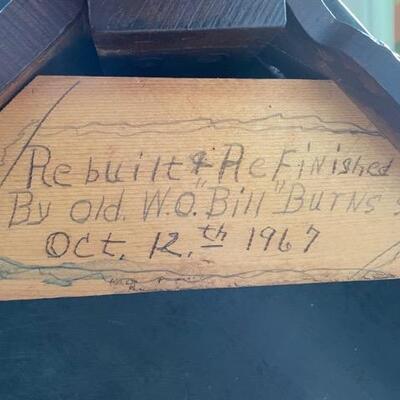 Rebuilt & ReFinished
By Old. W.O. "Bill" Burns
Oct. 12.th 1967